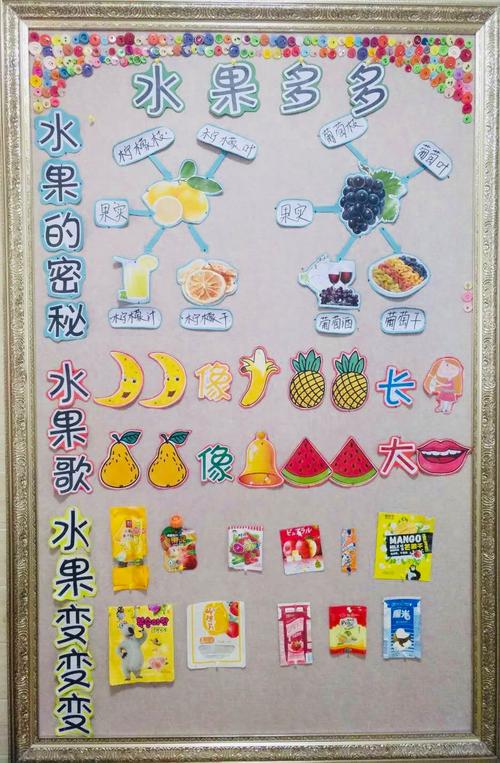 水果多多
水果的密秘
柠檬枝
柠檬叶
果实
柠檬汁
柠檬干
葡萄枝
葡萄叶
果实
葡萄酒
葡萄干
水果歌
像
长
像
大
水果变变变
MANGO